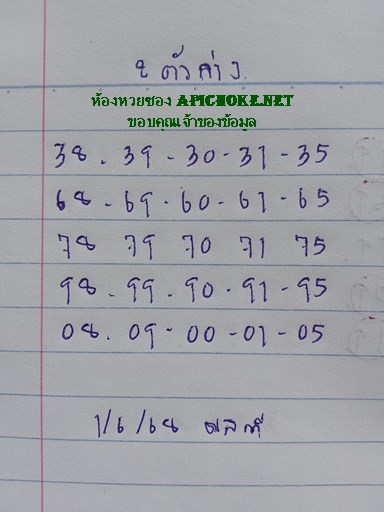 2 ตัวล่าง
ห้องหวยซอง APICHOKE.NET
ขอบคุณเจ้าของข้อมูล
38 - 39 - 30 - 31 - 35
68 - 69 - 60 - 61 - 65
78 79 70 71 75
98 - 99 - 90 - 91 - 95
08 - 09 - 00 - 01 - 05
1/6/68